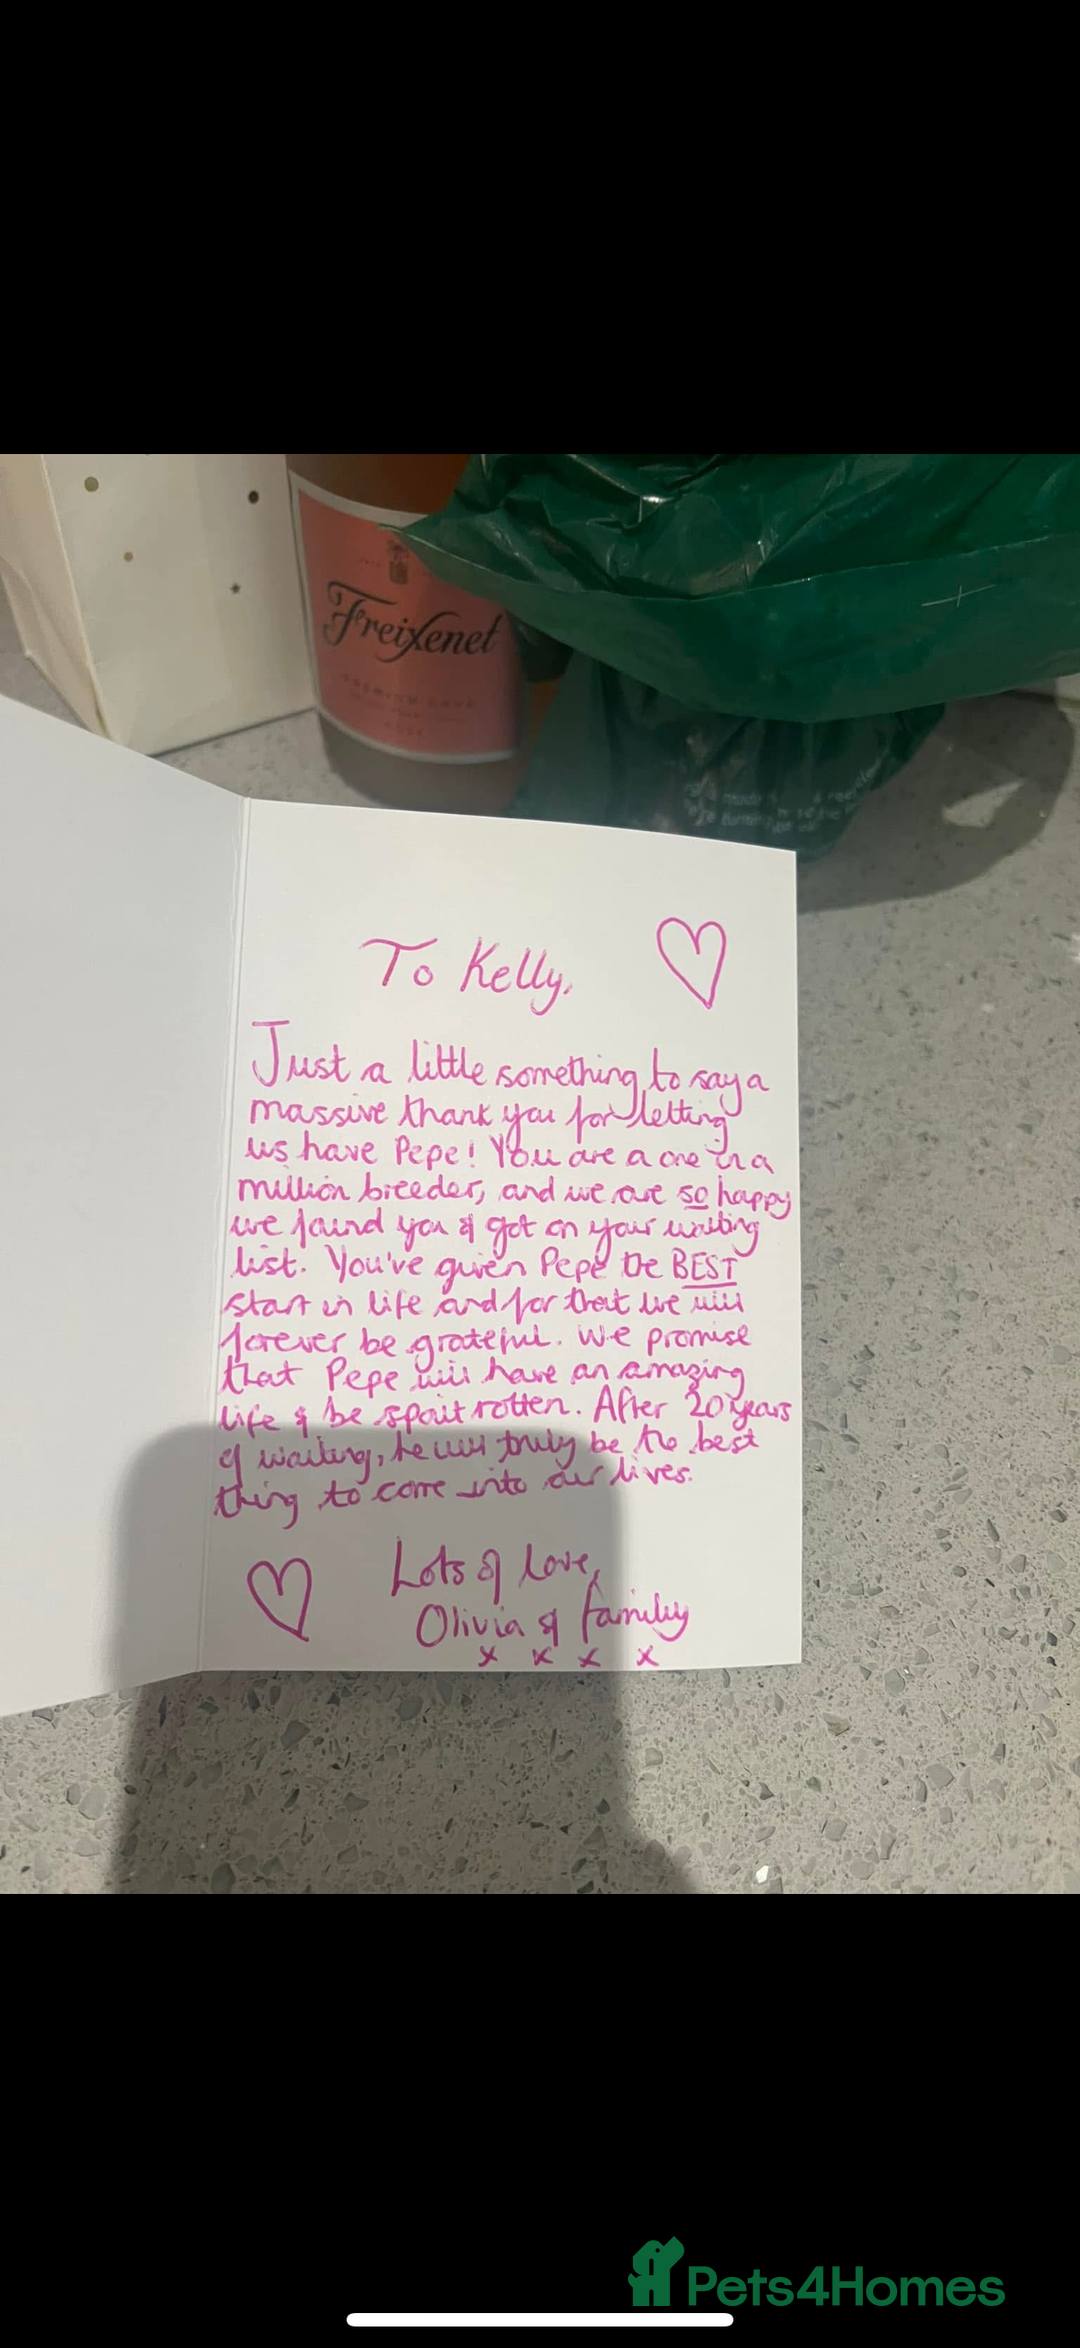 Freixenet
To Kelly,
Just a little something to say a
massive thank you for letting
us have Pepe! You are a one in a
million breeder, and we are so happy
we found you & got on your waiting
list. You've given Pepe the BEST
start in life and for that we will
forever be grateful. We promise
that Pepe will have an amazing
life & be spoilt rotten. After 20 years
of waiting, he will truly be the best
thing to come into our lives.
Lots of love,
Olivia & family
x x x x
Pets4Homes